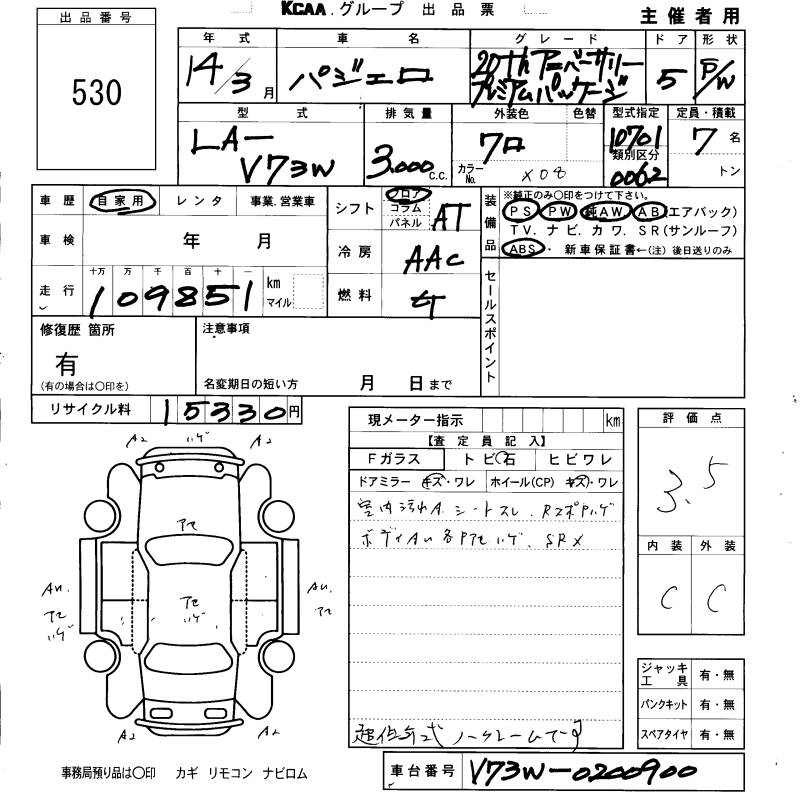 KCAA.グループ 出品票
主催者用
出品番号
530
年式 車名 グレード ドア 形状
14/3月 パジェロ 20thアニバーサリー プレミアムパッケージ 5 5/W
型式 排気量 外装色 色替 型式指定 定員・積載
LA-V73W 3.000c.c. クロ 10701 7名
カラーNo. X08 類別区分 0062 トン
車歴 自家用 レンタ 事業.営業車
シフト フロア コラム パネル AT
装備品 ※純正のみ○印をつけて下さい。
PS PW 純AW. AB(エアバック)
TV.ナビ.カワ.SR(サンルーフ)
ABS・ 新車保証書←(注)後日送りのみ
車検 年 月
冷房 AAC
走行 十万 万 千 百 十 一
109851 km マイル
燃料
セールスポイント
修復歴 箇所
有
(有の場合は○印を)
注意事項
名変期日の短い方 月 日まで
リサイクル料 15330円
現メーター指示 km
【査定員記入】
Fガラス トビ石 ヒビワレ
ドアミラー キズ・ワレ ホイール(CP) キズ・ワレ
室内汚れA. シートスレ. RスポPハゲ
ボディAU各Pアセハゲ. SRX
超低年式 ノークレームです
評価点
3.5
内装 外装
C C
ジャッキ工具 有・無
パンクキット 有・無
スペアタイヤ 有・無
A2 ハゲ A2
アセ
アセ
AU. アセ ハゲ
AU. アセ
A2 A2
事務局預り品は○印 カギ リモコン ナビロム
車台番号 V73W-0200900